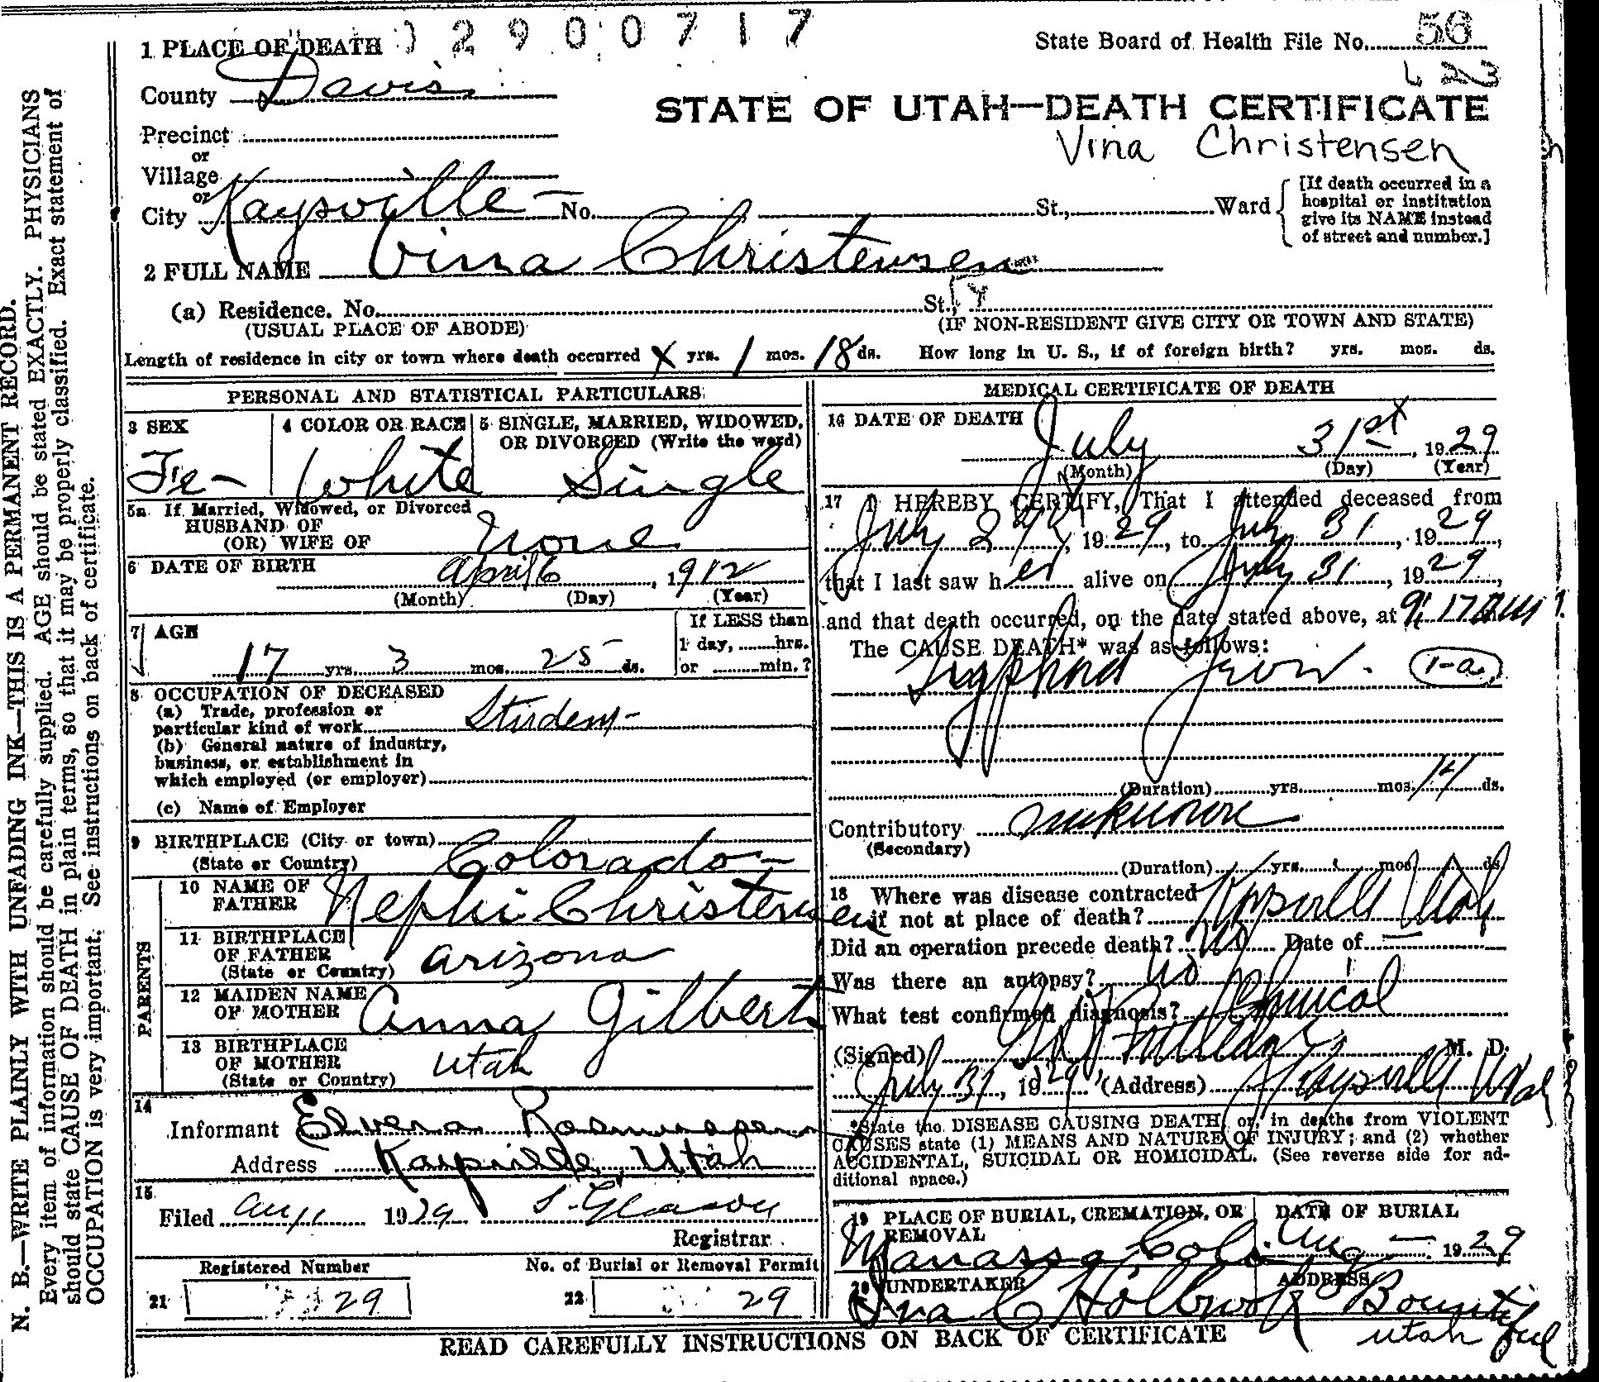 2900717
1 PLACE OF DEATH
State Board of Health File No. 56
County Davis
STATE OF UTAH—DEATH CERTIFICATE
Precinct
Vina Christensen
or
Village
or
City Kaysville — No. St., Ward
[If death occurred in a
hospital or institution
give its NAME instead
of street and number.]
2 FULL NAME Vina Christensen
(a) Residence. No. St.,
(USUAL PLACE OF ABODE) (IF NON-RESIDENT GIVE CITY OR TOWN AND STATE)
Length of residence in city or town where death occurred X yrs. 1 mos. 18 ds. How long in U. S., if of foreign birth? yrs. mos. ds.
PERSONAL AND STATISTICAL PARTICULARS
3 SEX
Fe-
4 COLOR OR RACE
White
5 SINGLE, MARRIED, WIDOWED,
OR DIVORCED (Write the word)
Single
5a If Married, Widowed, or Divorced
HUSBAND OF
(OR) WIFE OF None
6 DATE OF BIRTH April 6, 1912
(Month) (Day) (Year)
7 AGE
17 yrs. 3 mos. 25 ds.
If LESS than
1 day, hrs.
or min.?
8 OCCUPATION OF DECEASED
(a) Trade, profession or
particular kind of work Student
(b) General nature of industry,
business, or establishment in
which employed (or employer)
(c) Name of Employer
9 BIRTHPLACE (City or town)
(State or Country) Colorado-
PARENTS
10 NAME OF
FATHER Nephi Christensen
11 BIRTHPLACE
OF FATHER
(State or Country) Arizona
12 MAIDEN NAME
OF MOTHER Anna Gilbert
13 BIRTHPLACE
OF MOTHER
(State or Country) Utah
14
Informant Elvera Rasmussen
Address Kaysville, Utah
15
Filed Aug 1 1929 Gleason
Registrar
Registered Number
21 29
No. of Burial or Removal Permit
22 29
MEDICAL CERTIFICATE OF DEATH
16 DATE OF DEATH July 31st, 1929
(Month) (Day) (Year)
17 I HEREBY CERTIFY, That I attended deceased from
July, 1929, to July 31, 1929,
that I last saw her alive on July 31, 1929,
and that death occurred, on the date stated above, at 9:17 am
The CAUSE DEATH* was as follows:
Typhoid Fever. 1-a
(Duration) yrs. mos. 14 ds.
Contributory unknown
(Secondary)
(Duration) yrs. mos. ds.
18 Where was disease contracted
if not at place of death? Kaysville Utah
Did an operation precede death? No Date of
Was there an autopsy? No
What test confirmed diagnosis? Clinical
(Signed) M. D.
July 31, 1929 (Address) Kaysville Utah
*State the DISEASE CAUSING DEATH, or, in deaths from VIOLENT
CAUSES state (1) MEANS AND NATURE OF INJURY; and (2) whether
ACCIDENTAL, SUICIDAL OR HOMICIDAL. (See reverse side for ad-
ditional space.)
19 PLACE OF BURIAL, CREMATION, OR
REMOVAL
Manassa Colo.
DATE OF BURIAL
Aug — 1929
20 UNDERTAKER
Ira C Holbrook
ADDRESS
Bountiful
Utah
READ CAREFULLY INSTRUCTIONS ON BACK OF CERTIFICATE
N. B.—WRITE PLAINLY WITH UNFADING INK—THIS IS A PERMANENT RECORD.
Every item of information should be carefully supplied. AGE should be stated EXACTLY. PHYSICIANS
should state CAUSE OF DEATH in plain terms, so that it may be properly classified. Exact statement of
OCCUPATION is very important. See instructions on back of certificate.